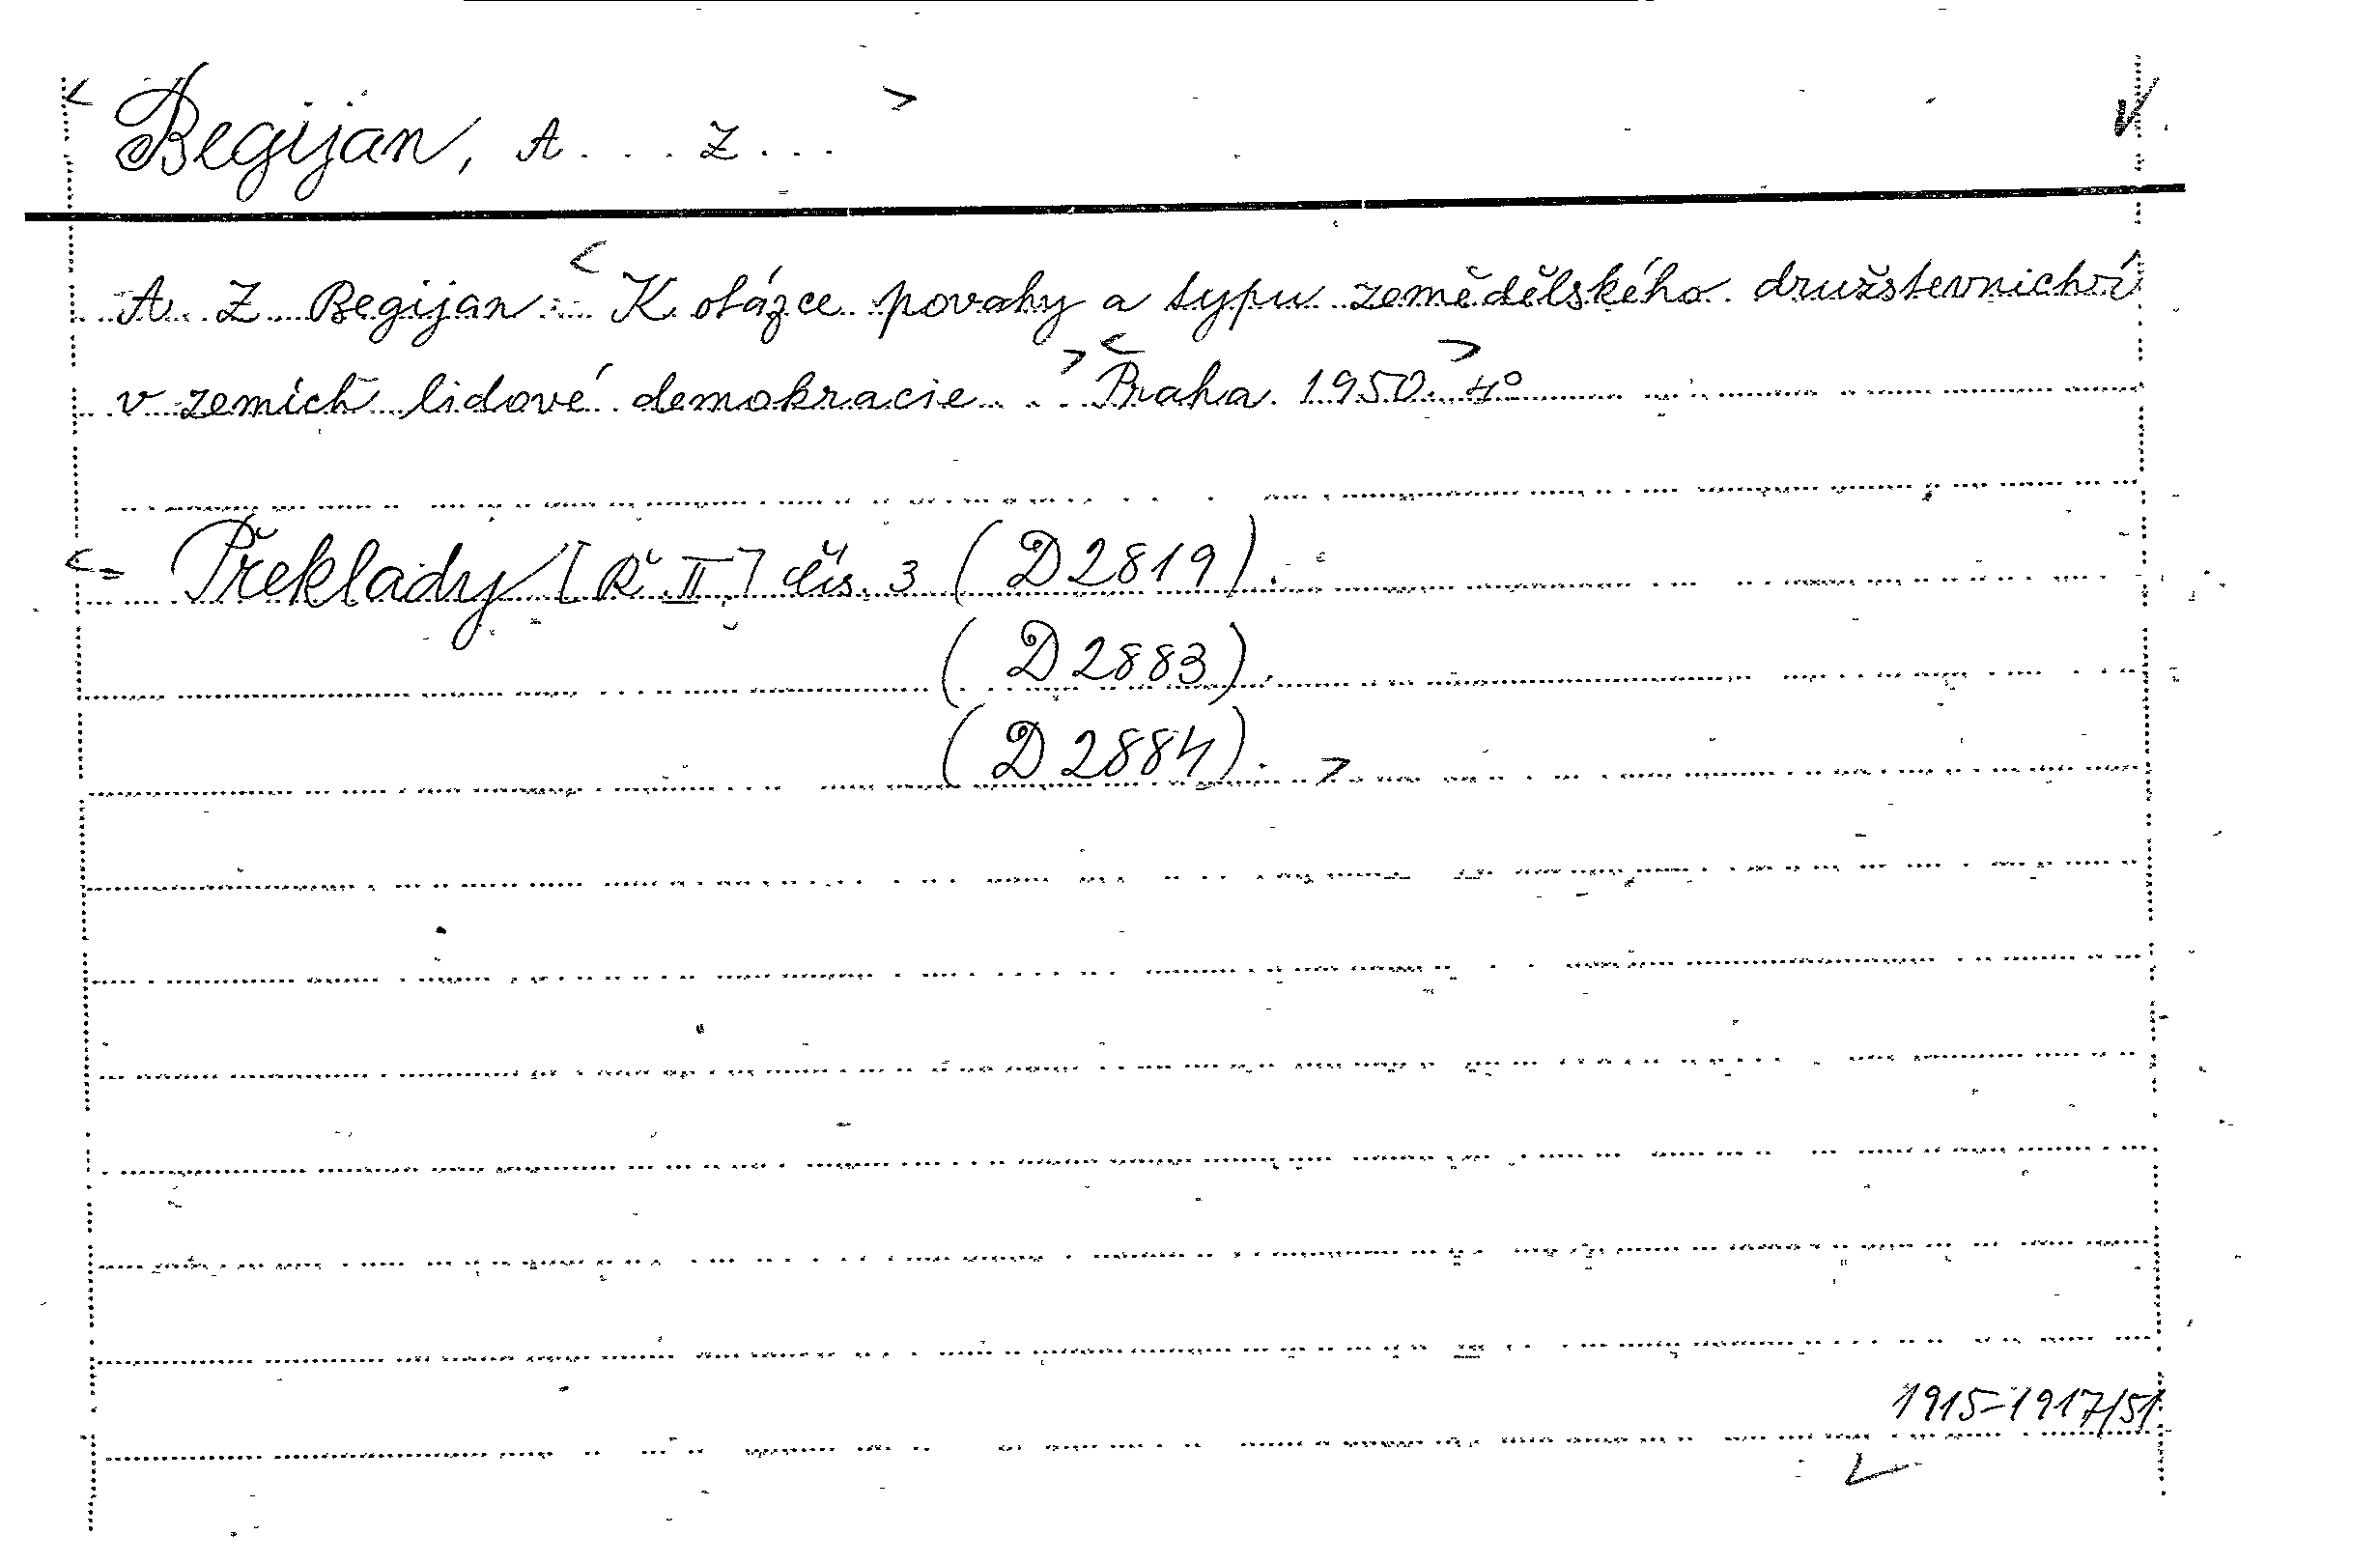 < Begijan, A... Z... >
A. Z. Begijan: < K otázce povahy a typu zemědělského družstevnictví
v zemích lidové demokracie... > < Praha 1950. > 4°
< = Překlady [Ř. II.] čís. 3 (D 2819).
(D 2883).
(D 2884). >
1915-1917/51